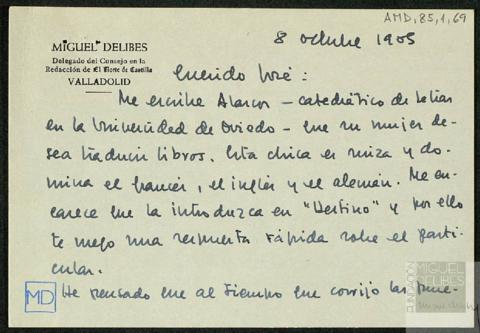 AMD,85,1,69
8 octubre 1965
MIGUEL DELIBES
Delegado del Consejo en la
Redacción de El Norte de Castilla
VALLADOLID
Querido José:
Me escribe Alarcos – catedrático de Letras
en la Universidad de Oviedo – que su mujer de-
sea traducir libros. Esta chica es suiza y do-
mina el francés, el inglés y el alemán. Me en-
carece que la introduzca en "Destino" y por ello
te ruego una respuesta rápida sobre el parti-
cular.
He pensado que al tiempo que corrijo las prue-
MD
FUNDACIÓN
MIGUEL
DELIBES